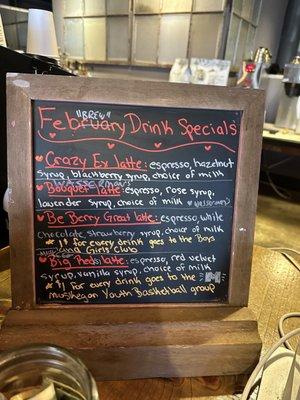 "BREW"
February Drink Specials
Crazy Ex latte: espresso, hazelnut
syrup, blackberry syrup, choice of milk
Bouquet latte: espresso, rose syrup,
lavender syrup, choice of milk
Be Berry Great latte: espresso, white
chocolate, strawberry syrup, choice of milk
* 1$ for every drink goes to the Boys
and Girls Club
Big Reds latte: espresso, red velvet
syrup, vanilla syrup, choice of milk
* 1$ for every drink goes to the M
Muskegon Youth Basketball group